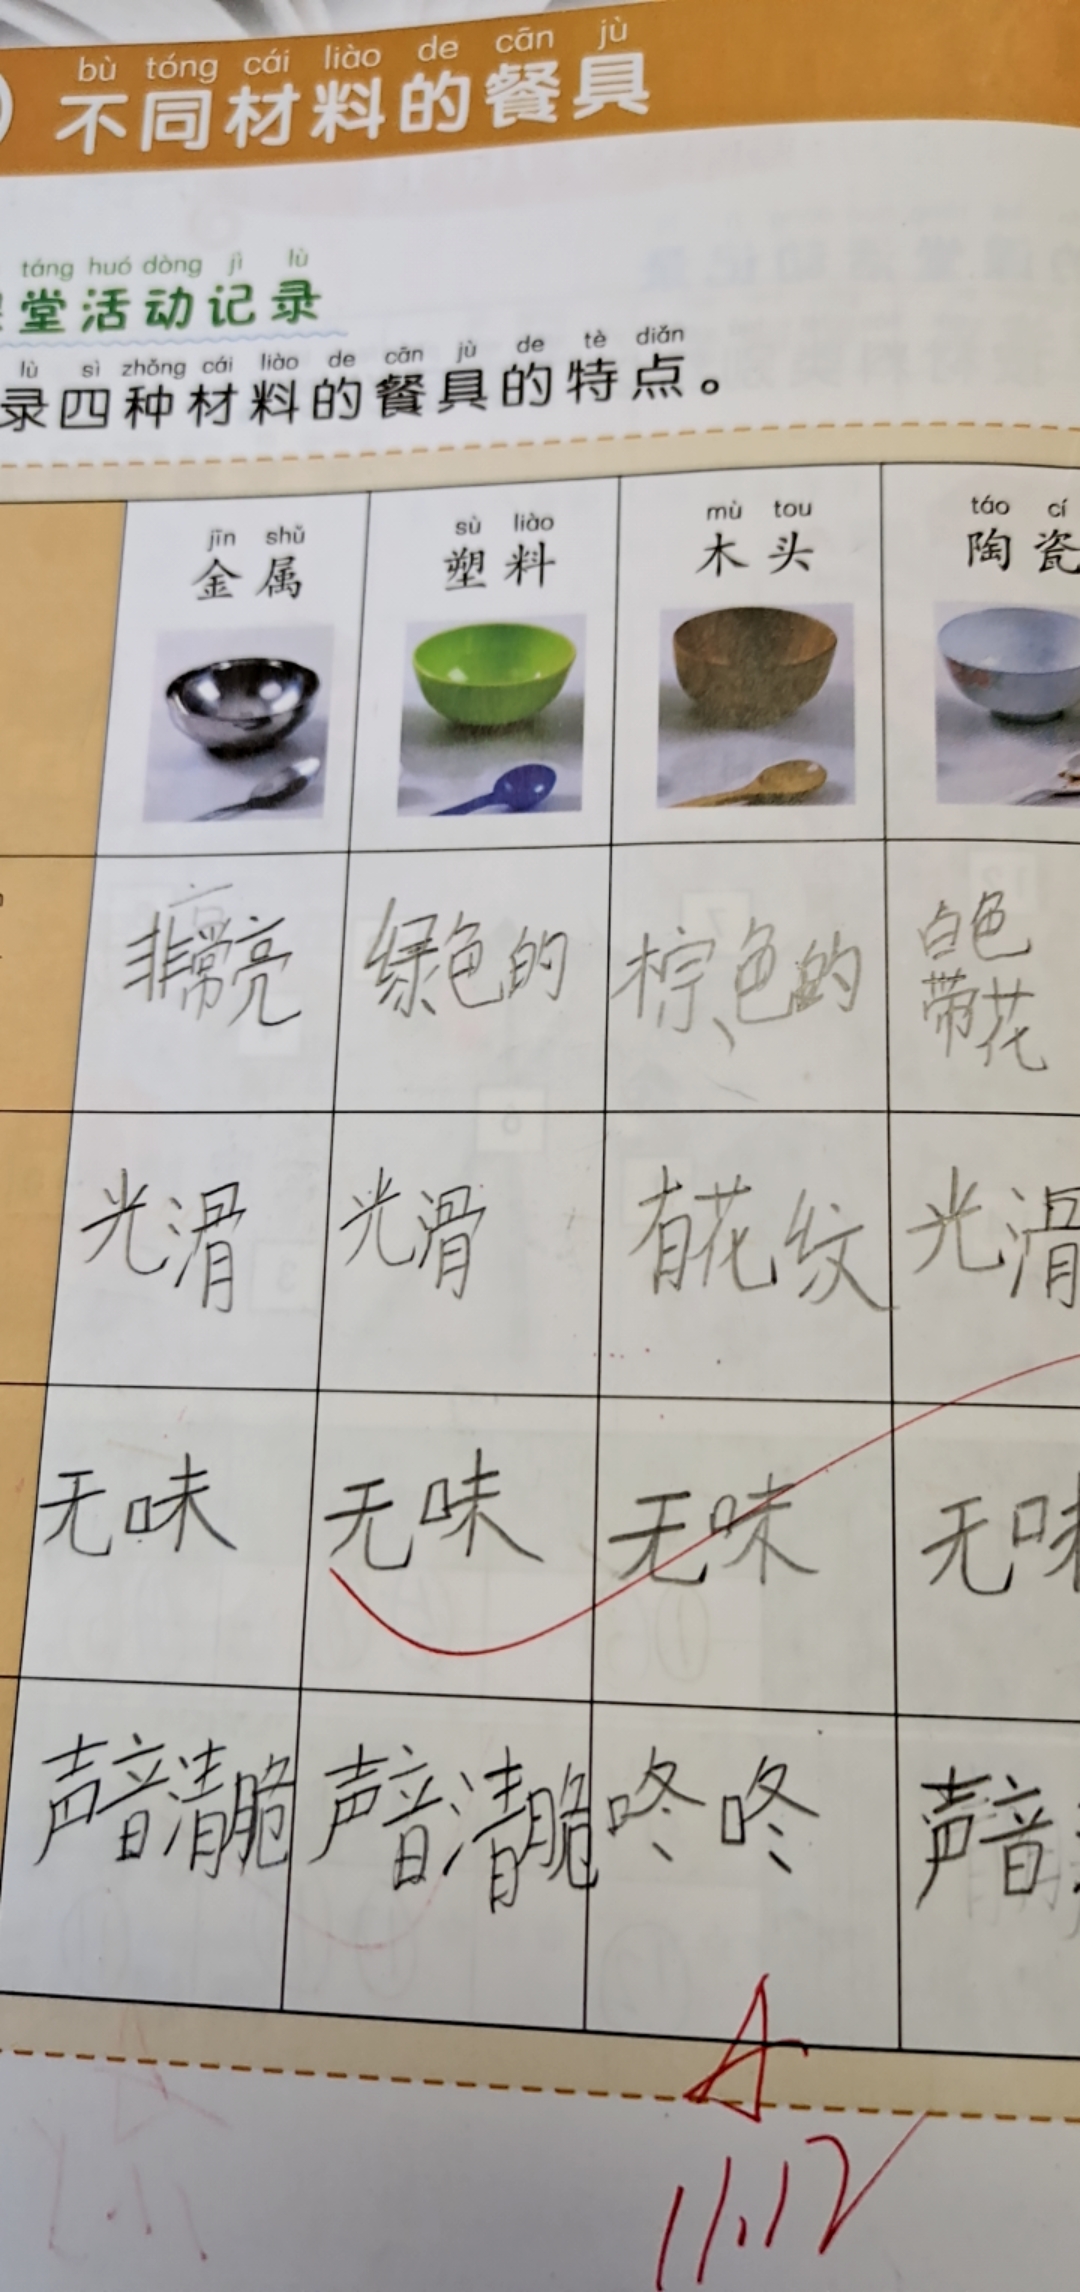 bù tóng cái liào de cān jù
不同材料的餐具
táng huó dòng jì lù
堂活动记录
lù sì zhǒng cái liào de cān jù de tè diǎn
录四种材料的餐具的特点。
jīn shǔ sù liào mù tou táo cí
金属 塑料 木头 陶瓷
非常亮 绿色的 棕色的 白色
带花
光滑 光滑 有花纹 光滑
无味 无味 无味 无味
声音清脆 声音清脆 咚咚 声音
A
11.12